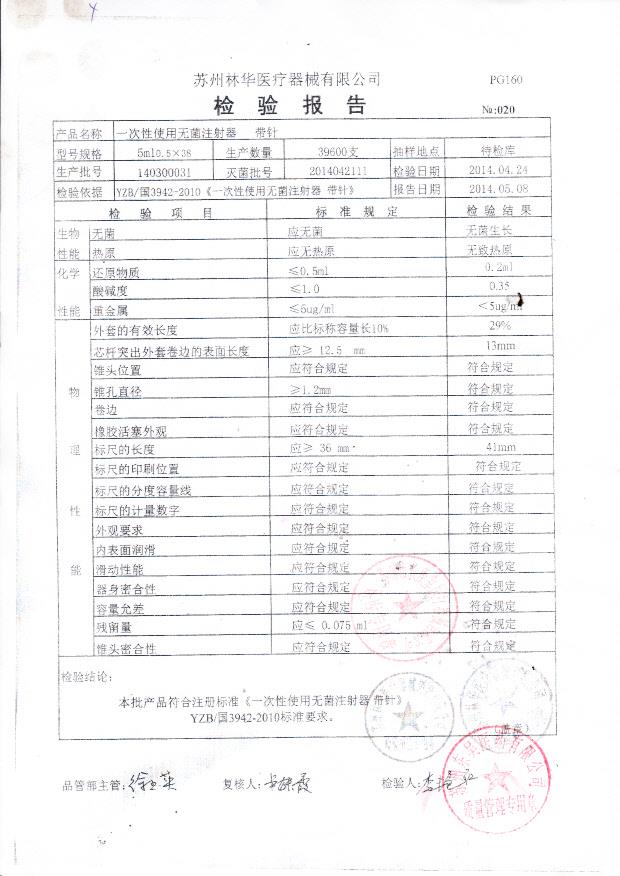 苏州林华医疗器械有限公司 PG160
检 验 报 告 №:020
产品名称 一次性使用无菌注射器 带针
型号规格 5ml0.5×38 生产数量 39600支 抽样地点 待检库
生产批号 140300031 灭菌批号 2014042111 检验日期 2014.04.24
检验依据 YZB/国3942-2010《一次性使用无菌注射器 带针》 报告日期 2014.05.08
检 验 项 目 标 准 规 定 检 验 结 果
生物 无菌 应无菌 无菌生长
性能 热原 应无热原 无致热原
化学 还原物质 ≤0.5ml 0.2ml
酸碱度 ≤1.0 0.35
性能 重金属 ≤5ug/ml <5ug/ml
外套的有效长度 应比标称容量长10% 29%
芯杆突出外套卷边的表面长度 应≥ 12.5 mm 13mm
锥头位置 应符合规定 符合规定
物 锥孔直径 ≥1.2mm 符合规定
卷边 应符合规定 符合规定
橡胶活塞外观 应符合规定 符合规定
理 标尺的长度 应≥ 36 mm 41mm
标尺的印刷位置 应符合规定 符合规定
标尺的分度容量线 应符合规定 符合规定
性 标尺的计量数字 应符合规定 符合规定
外观要求 应符合规定 符合规定
内表面润滑 应符合规定 符合规定
能 滑动性能 应符合规定 符合规定
器身密合性 应符合规定 符合规定
容量允差 应符合规定 符合规定
残留量 应≤ 0.075 ml 符合规定
锥头密合性 应符合规定 符合规定
检验结论:
本批产品符合注册标准《一次性使用无菌注射器 带针》
YZB/国3942-2010标准要求。
品管部主管: 复核人: 检验人:
质量管理专用章